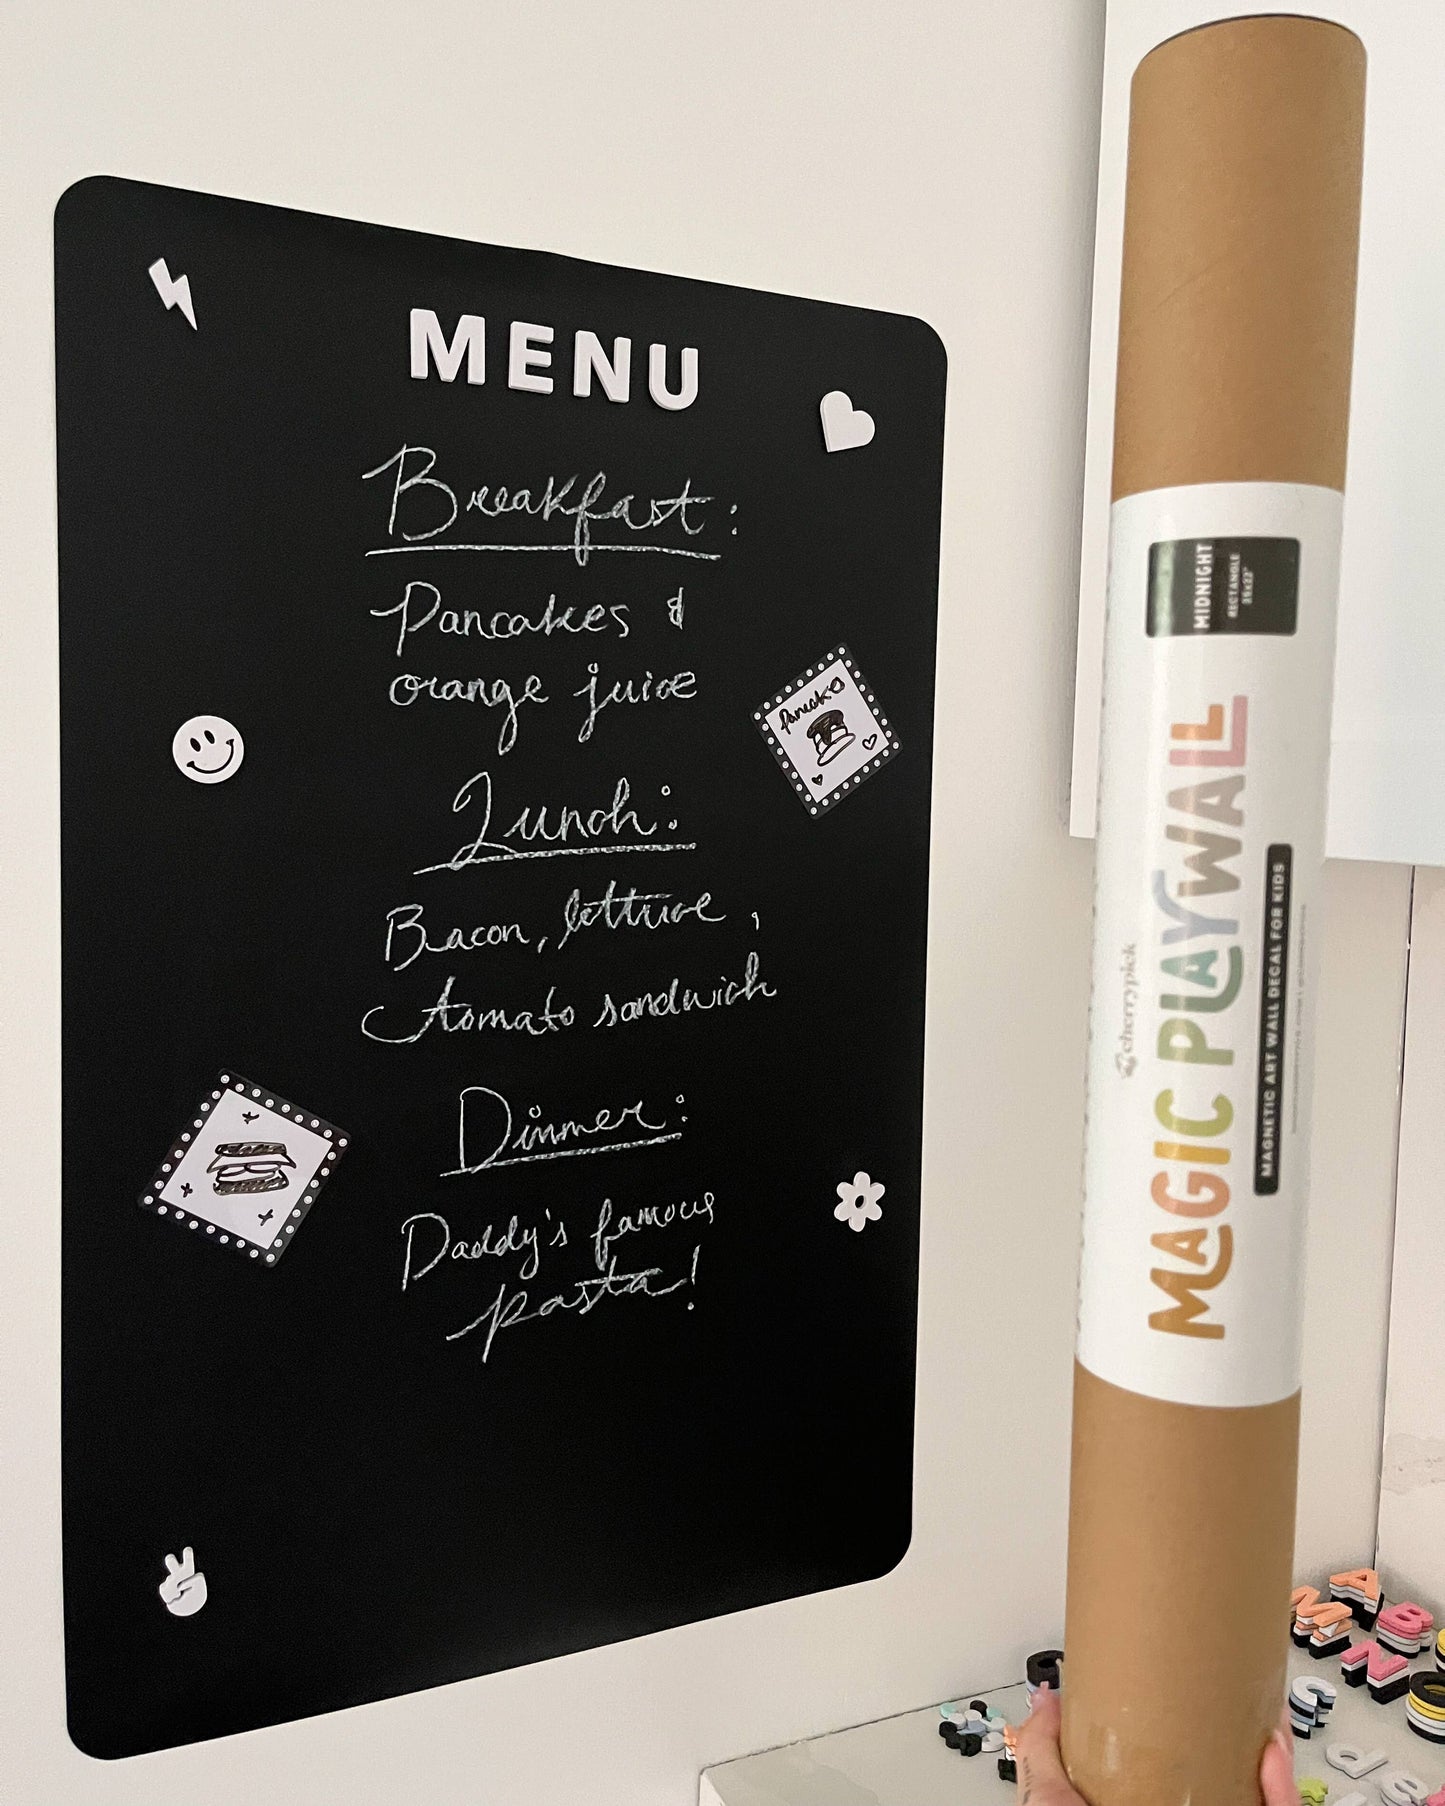 MENU
Breakfast:
Pancakes &
orange juice
Lunch:
Bacon, lettuce,
tomato sandwich
Dinner:
Daddy's famous
pasta!
Pancakes
MIDNIGHT
RECTANGLE
35x22"
cherrypick
MAGIC PLAYWALL
MAGNETIC ART WALL DECAL FOR KIDS
A
M
B
N
C
d
e